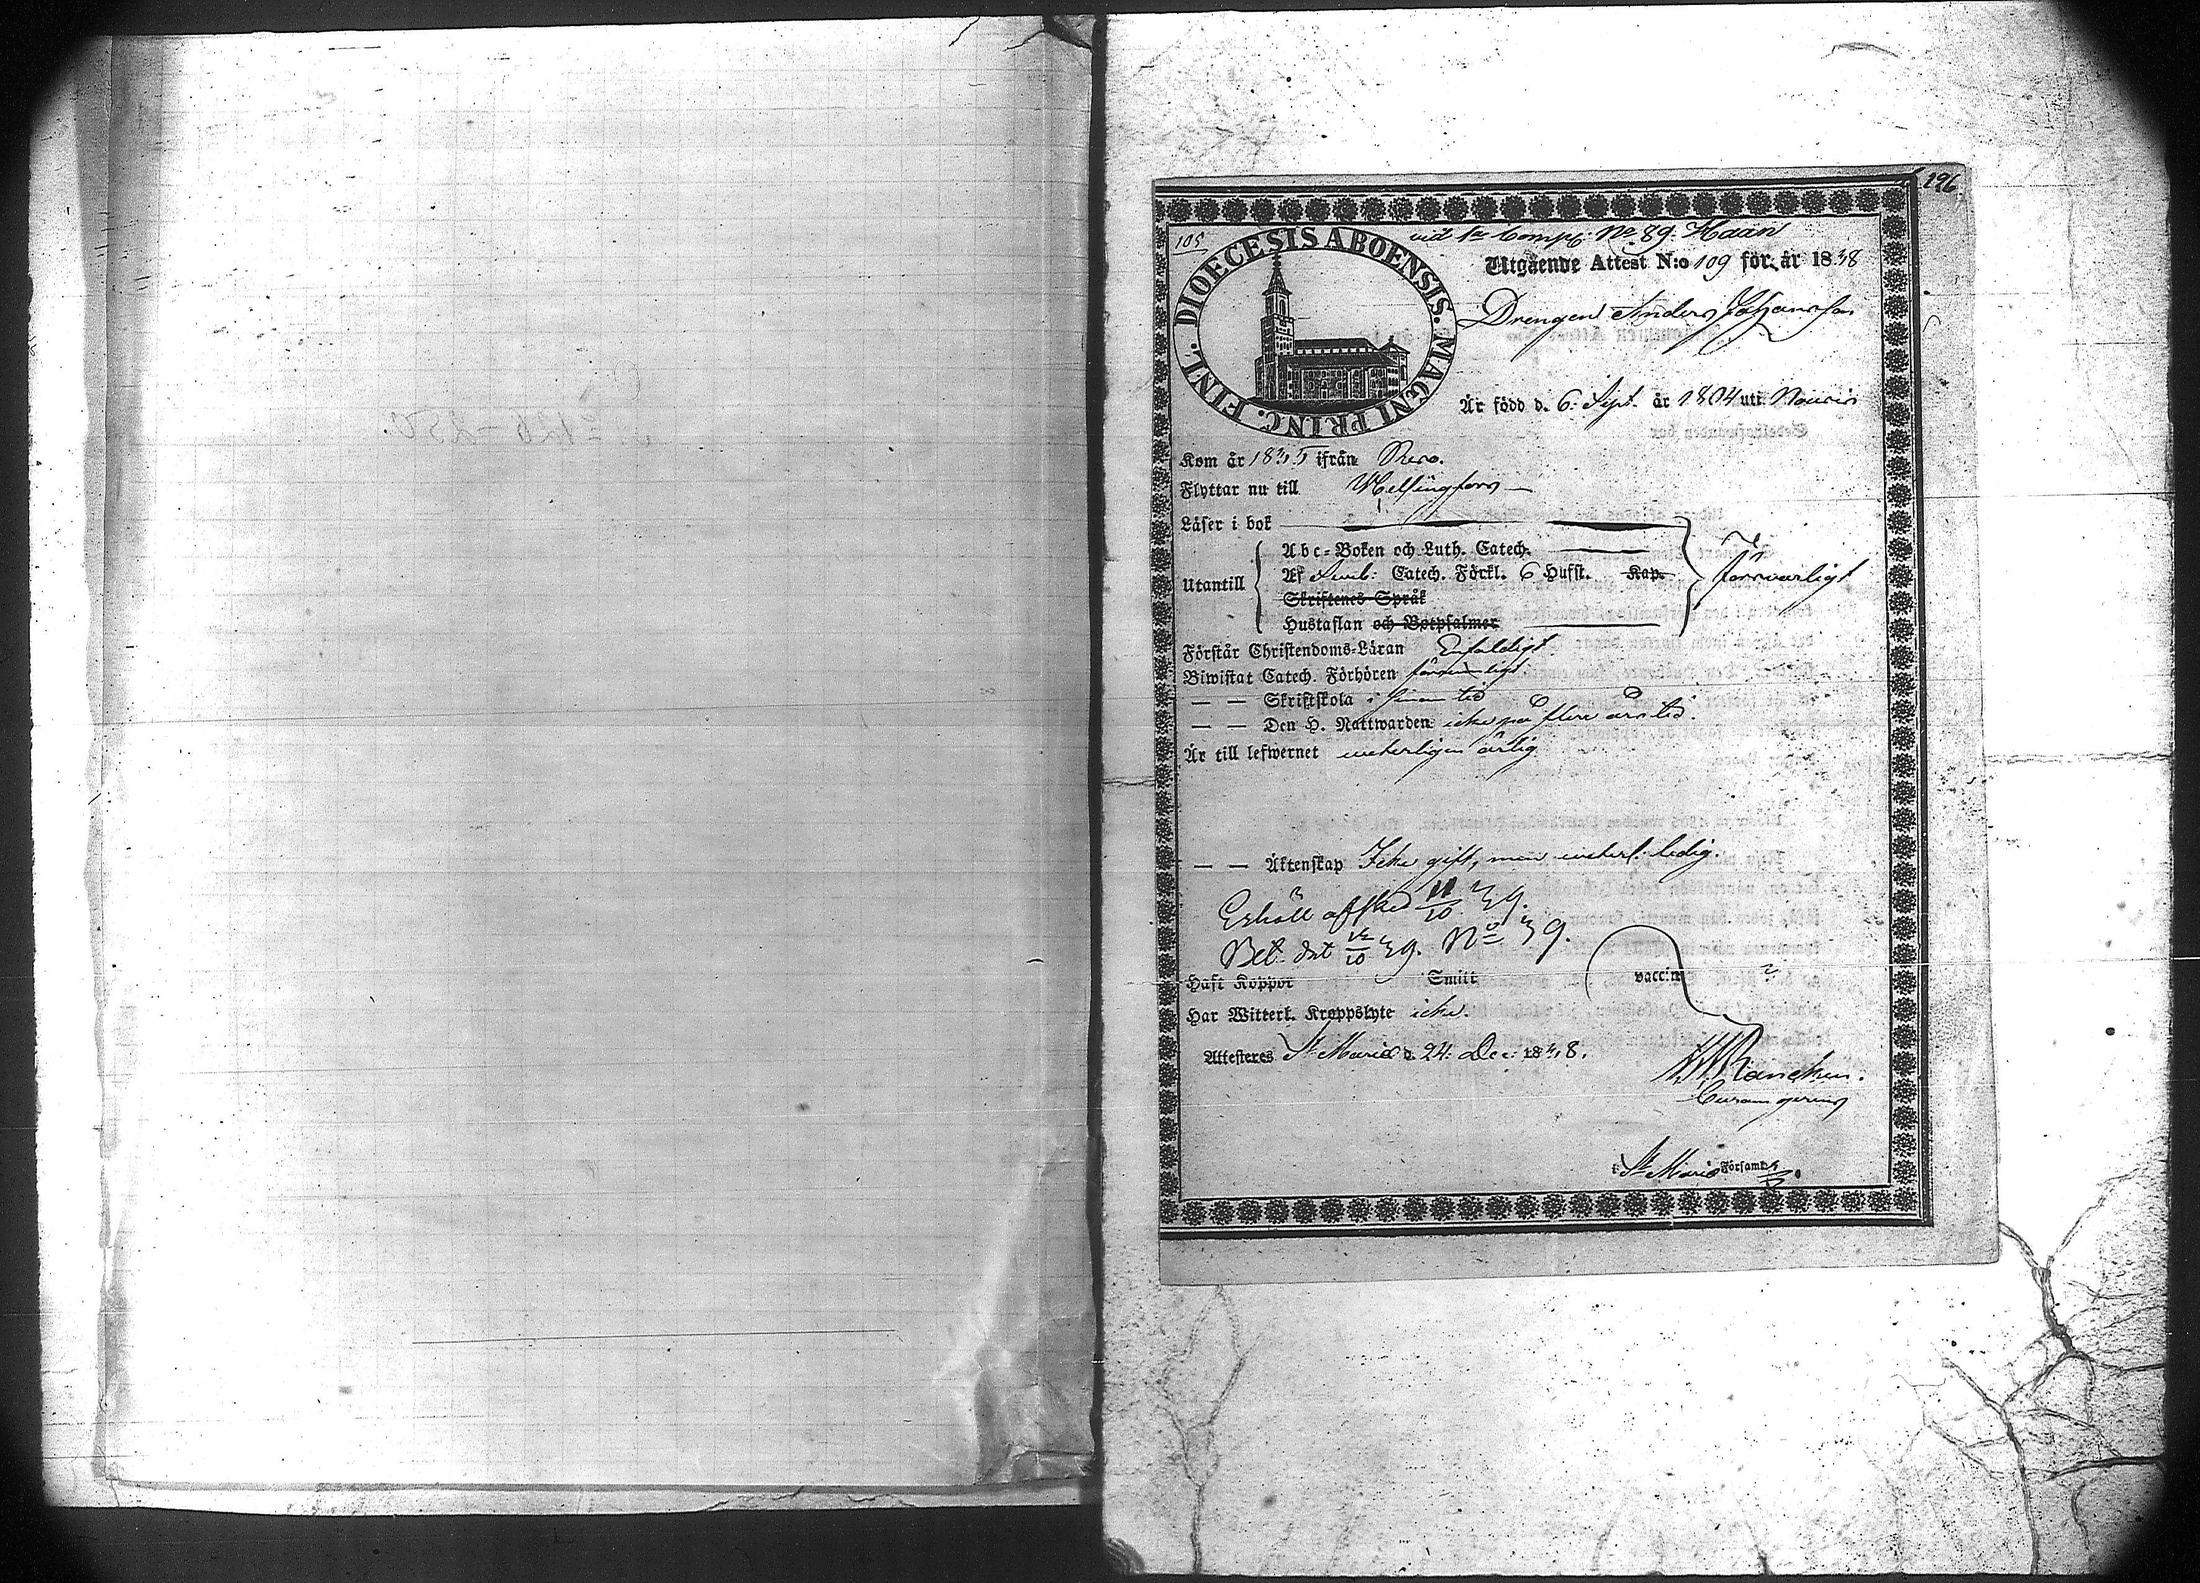 196
105
vid 1:a Comp: No 89. Haan
DIOECESIS ABOENSIS. MAGNI PRINC. FINL.
Utgående Attest N:o 109 för år 1838
Drengen Anders Johansson
Är född d. 6. Sept. år 1804 uti Nousis
Kom år 1835 ifrån Reso.
Flyttar nu till Helsingfors
Läser i bok
Abc-Boken och Luth. Catech.
Utantill Af Sveb: Catech. Förkl. 6 Hufst. Kap. försvarligt
Skriftenes Språk
Hustaflan och Botpsalmer
Förstår Christendoms-Läran Enfaldigt
Biwistat Catech. Förhören försvarligt.
— — Skriftskola i sinom tid
— — Den H. Nattwarden icke på flere års tid.
Är till lefwernet veterligen ärlig
— — Äktenskap Icke gift, men veterl. ledig.
Erhöll afsked 11/10 39.
Bet. dat 12/10 39. No 39.
Haft Koppor Smitt vaccin ?
Har Witterl. Kroppslyte icke.
Attesteres St Marie d. 24. Dec: 1838.
Rancken.
Curam gerens
i St Marie Församl.